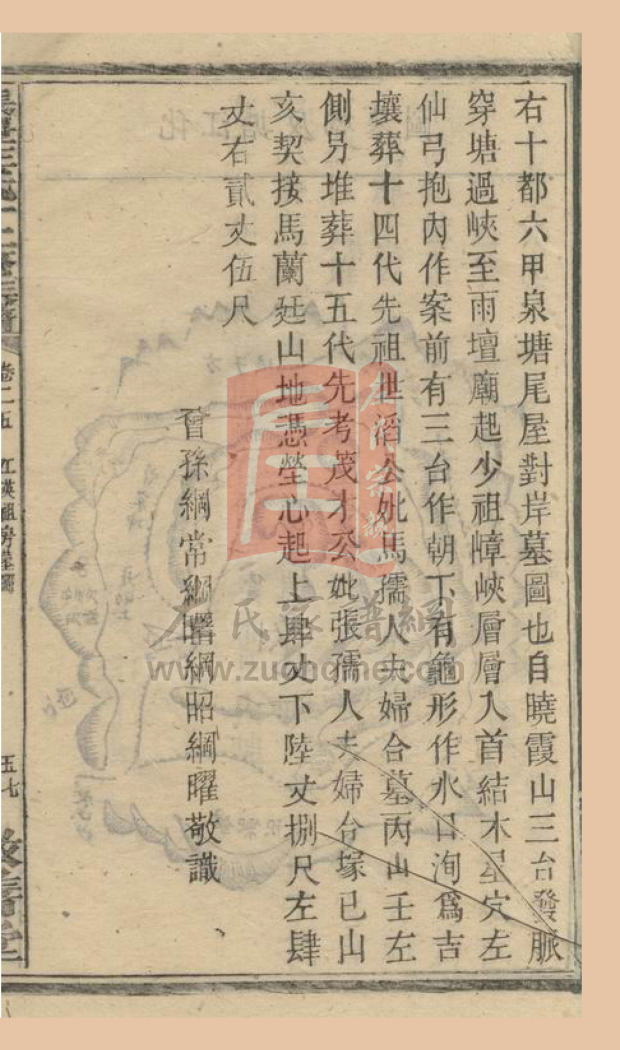 右十都六甲泉塘尾屋對岸墓圖也自曉霞山三台發脈
穿塘過峽至雨壇廟起少祖嶂峽層層入首結木星穴左
仙弓抱內作案前有三台作朝下有龜形作水口洵為吉
壤葬十四代先祖世滔公妣馬孺人夫婦合墓丙山壬左
側另堆葬十五代先考茂才公妣張孺人夫婦合塚巳山
亥契接馬蘭廷山地憑塋心起上肆丈下陸丈捌尺左肆
丈右貳丈伍尺
曾孫綱常綱曙綱昭綱曜敬識
卷二五
五七
敦睦堂
左氏家譜網
www.zuohome.com